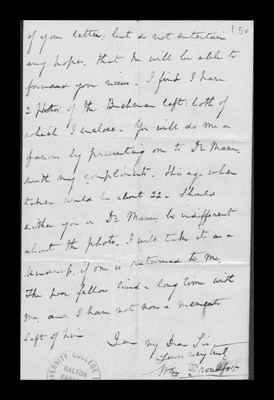 of your letter; but do not entertain
any hopes, that he will be able to
forward your views. I find I have
2 photos of the Bushman left; both of
which I enclose. You will do me a
favour by presenting one to Dr Mann,
with my compliments. His age when
taken would be about 22. Should
either you or Dr Mann, be indifferent
about the photo. I will take it as a
kindness, if one is returned to me,
The poor fellow lived a long time with
me, and I have not now a memento
left of him
I am my Dear Sir
Yours very truly
Wm
UNIVERSITY COLLEGE
GALTON